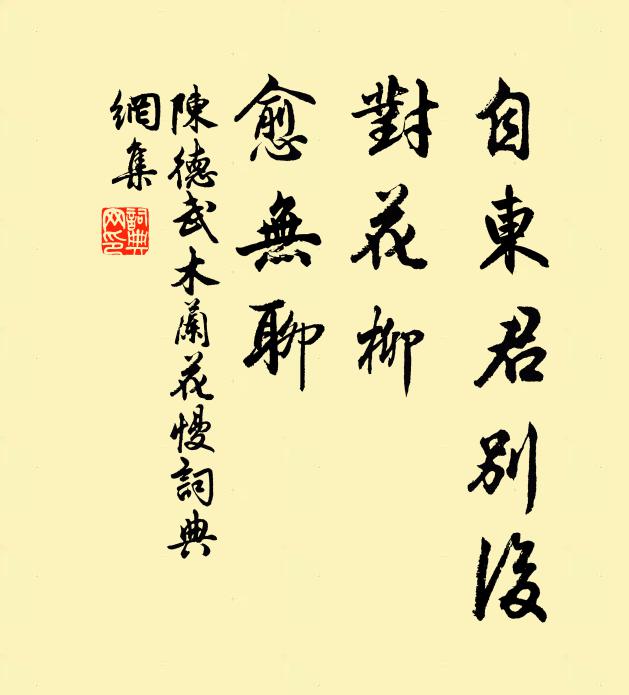 自東君別後
對花柳
愈無聊
陳德武木蘭花慢詞典
網集
詞典網印